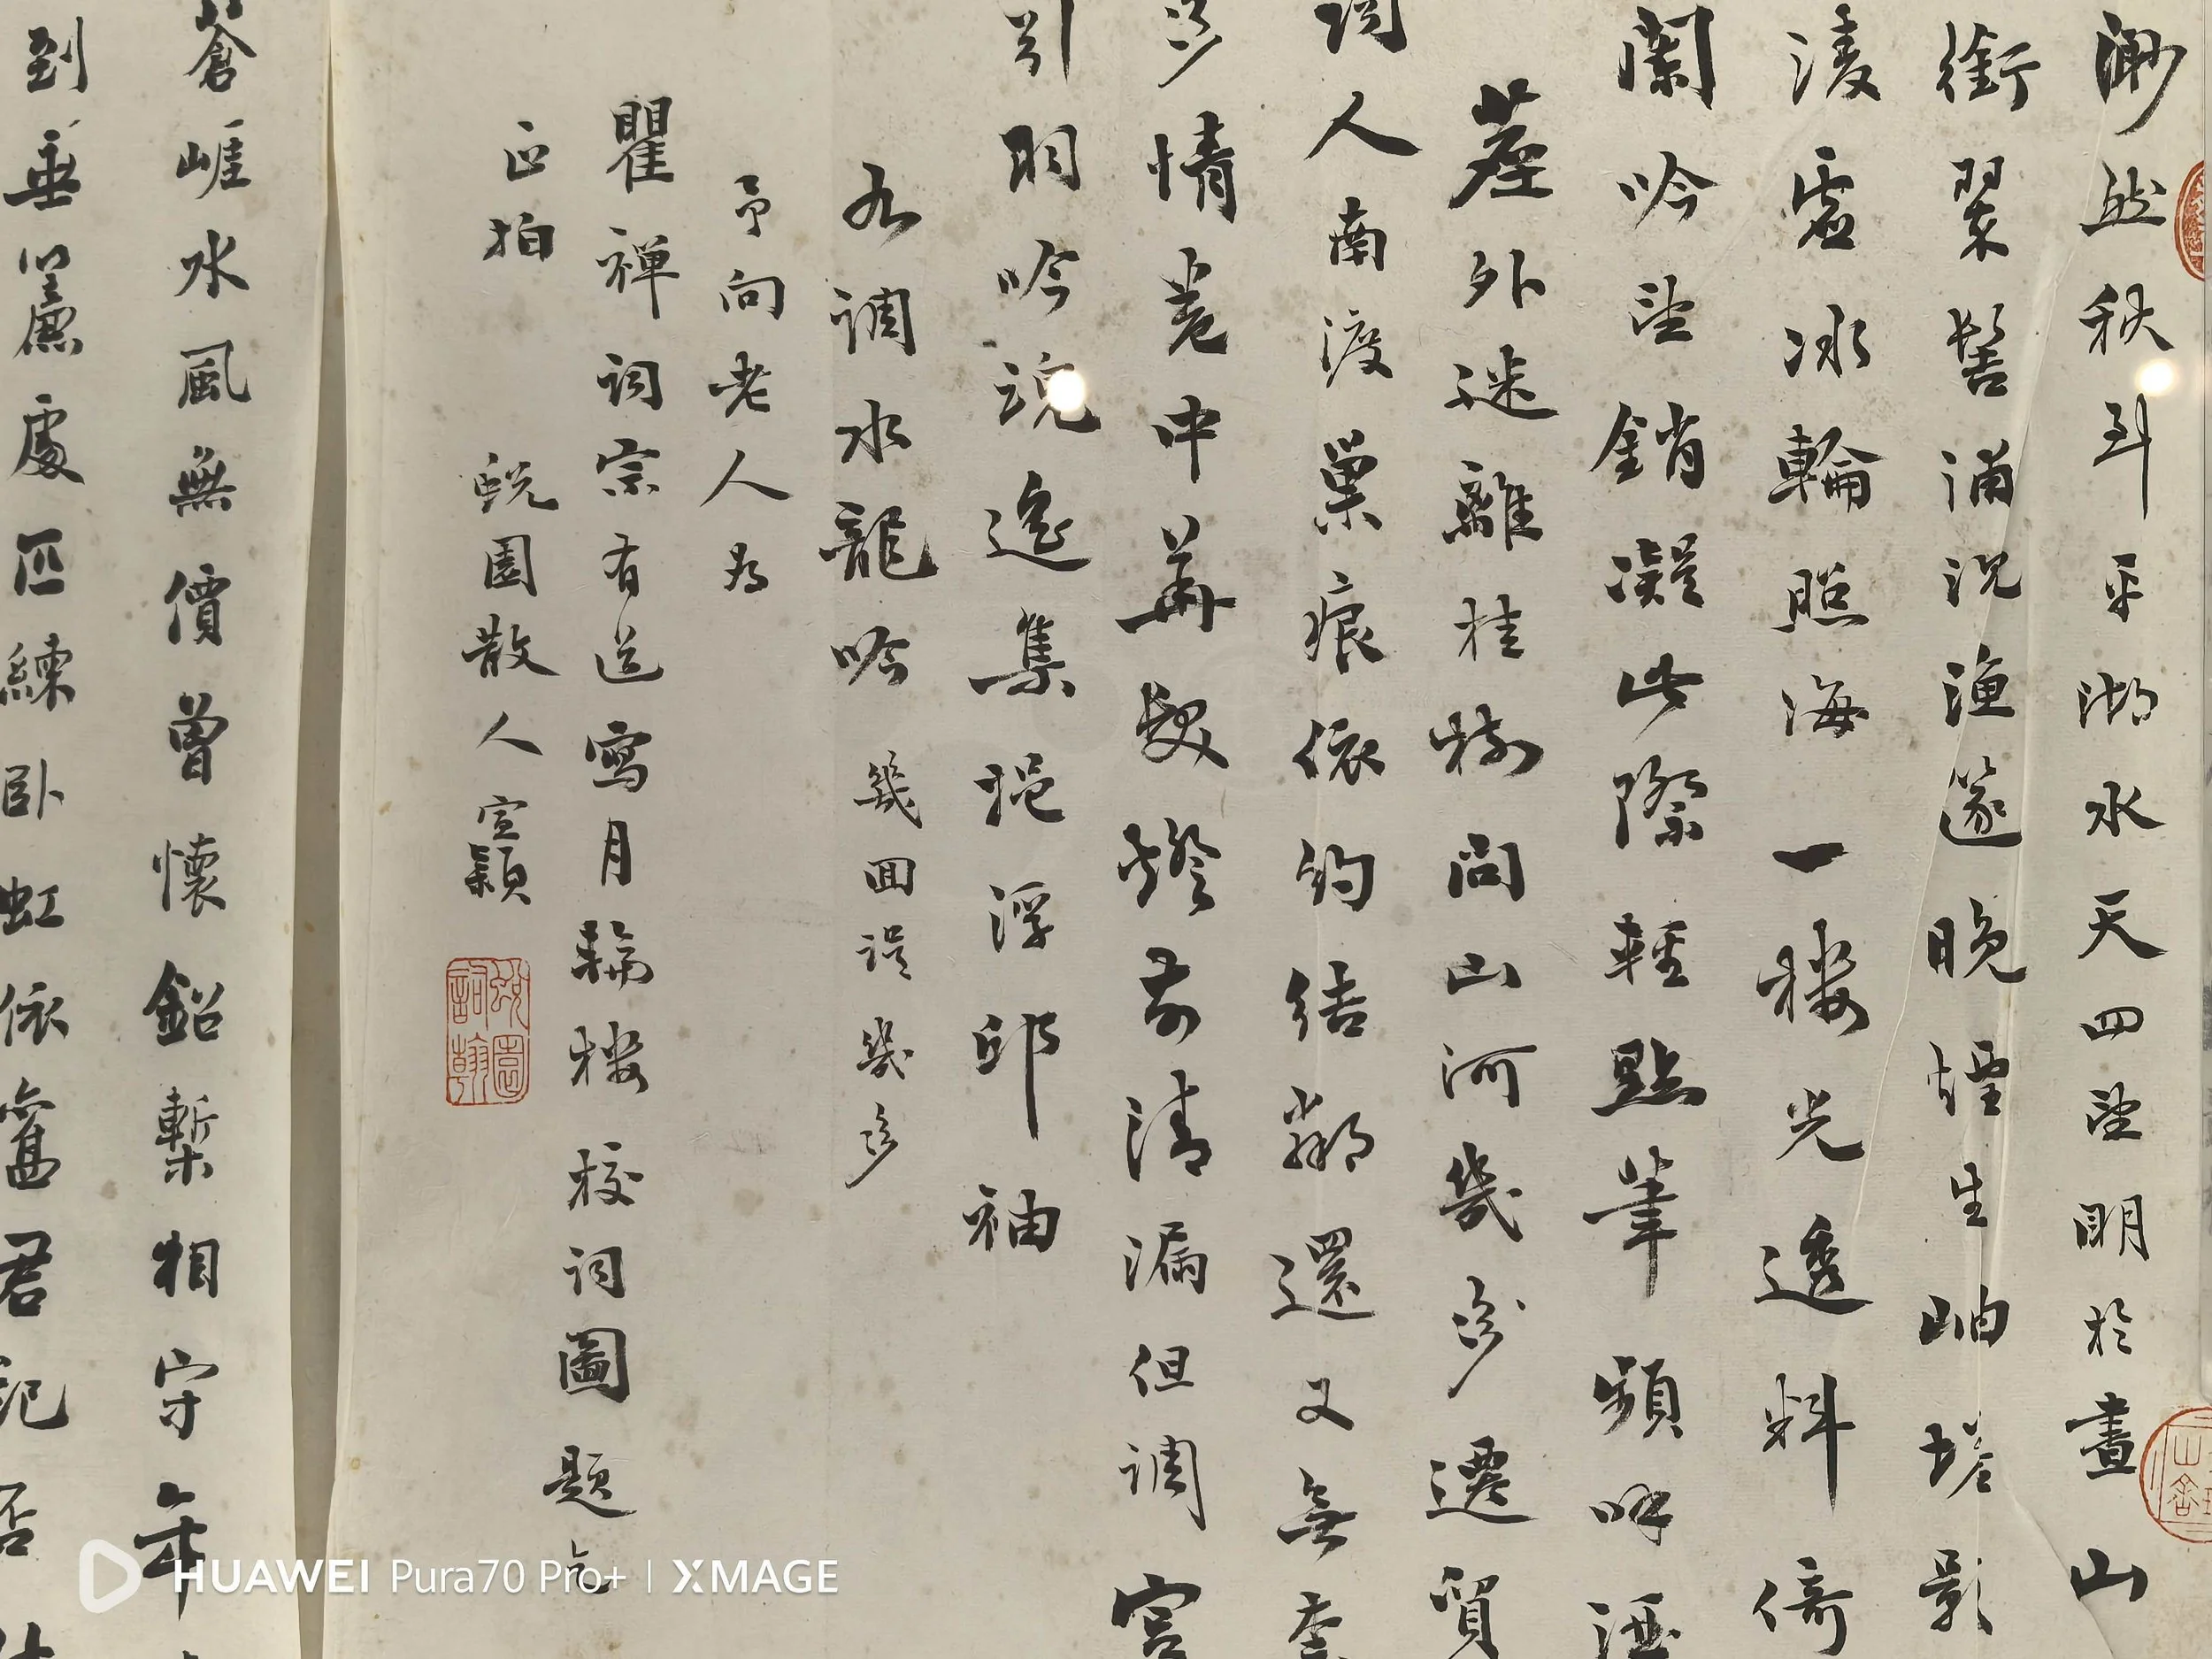 渺然秋到平湖水天四望明於晝山
銜翠髻浦沉漁邃晚煙生岫塔影
淩虛冰輪照海一樓光透料倚
闌吟望銷凝此際輕點筆頻呼酒
塵外迷離桂樹問山河幾多遷貿
詞人南渡巢痕依約結鄰還又無奈
多情卷中華髮燈前清漏但調宮
引羽吟魂遙集挹浮邱袖
右調水龍吟 幾回誤幾多
予向老人為
瞿禪詞宗有道寫月輪樓校詞圖題乞
正拍 蛻園散人宣穎
蒼崕水風無價曾懷鉛槧相守年
到垂簾處匹練臥虹依舊君記否
HUAWEI Pura70 Pro+ | XMAGE